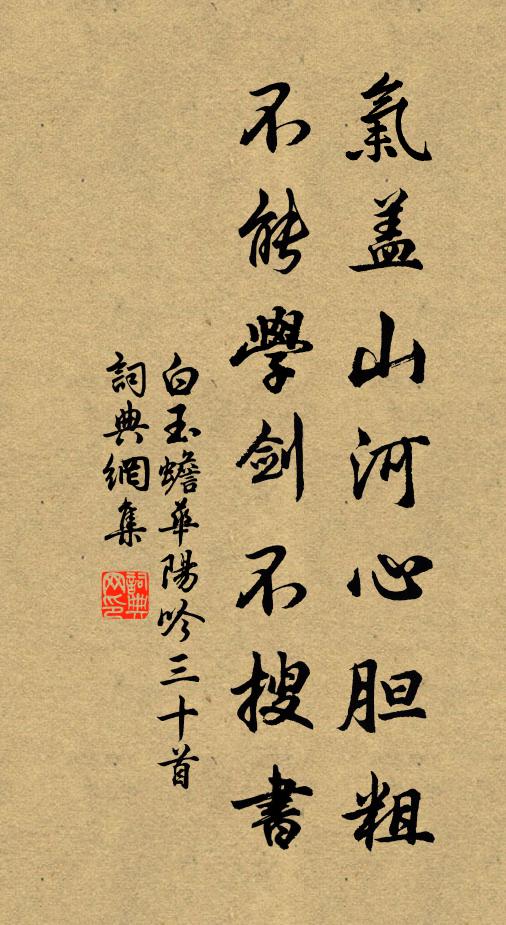 氣盖山河心胆粗
不能學剑不搜書
白玉蟾華陽吟三十首
詞典網集
詞典网印